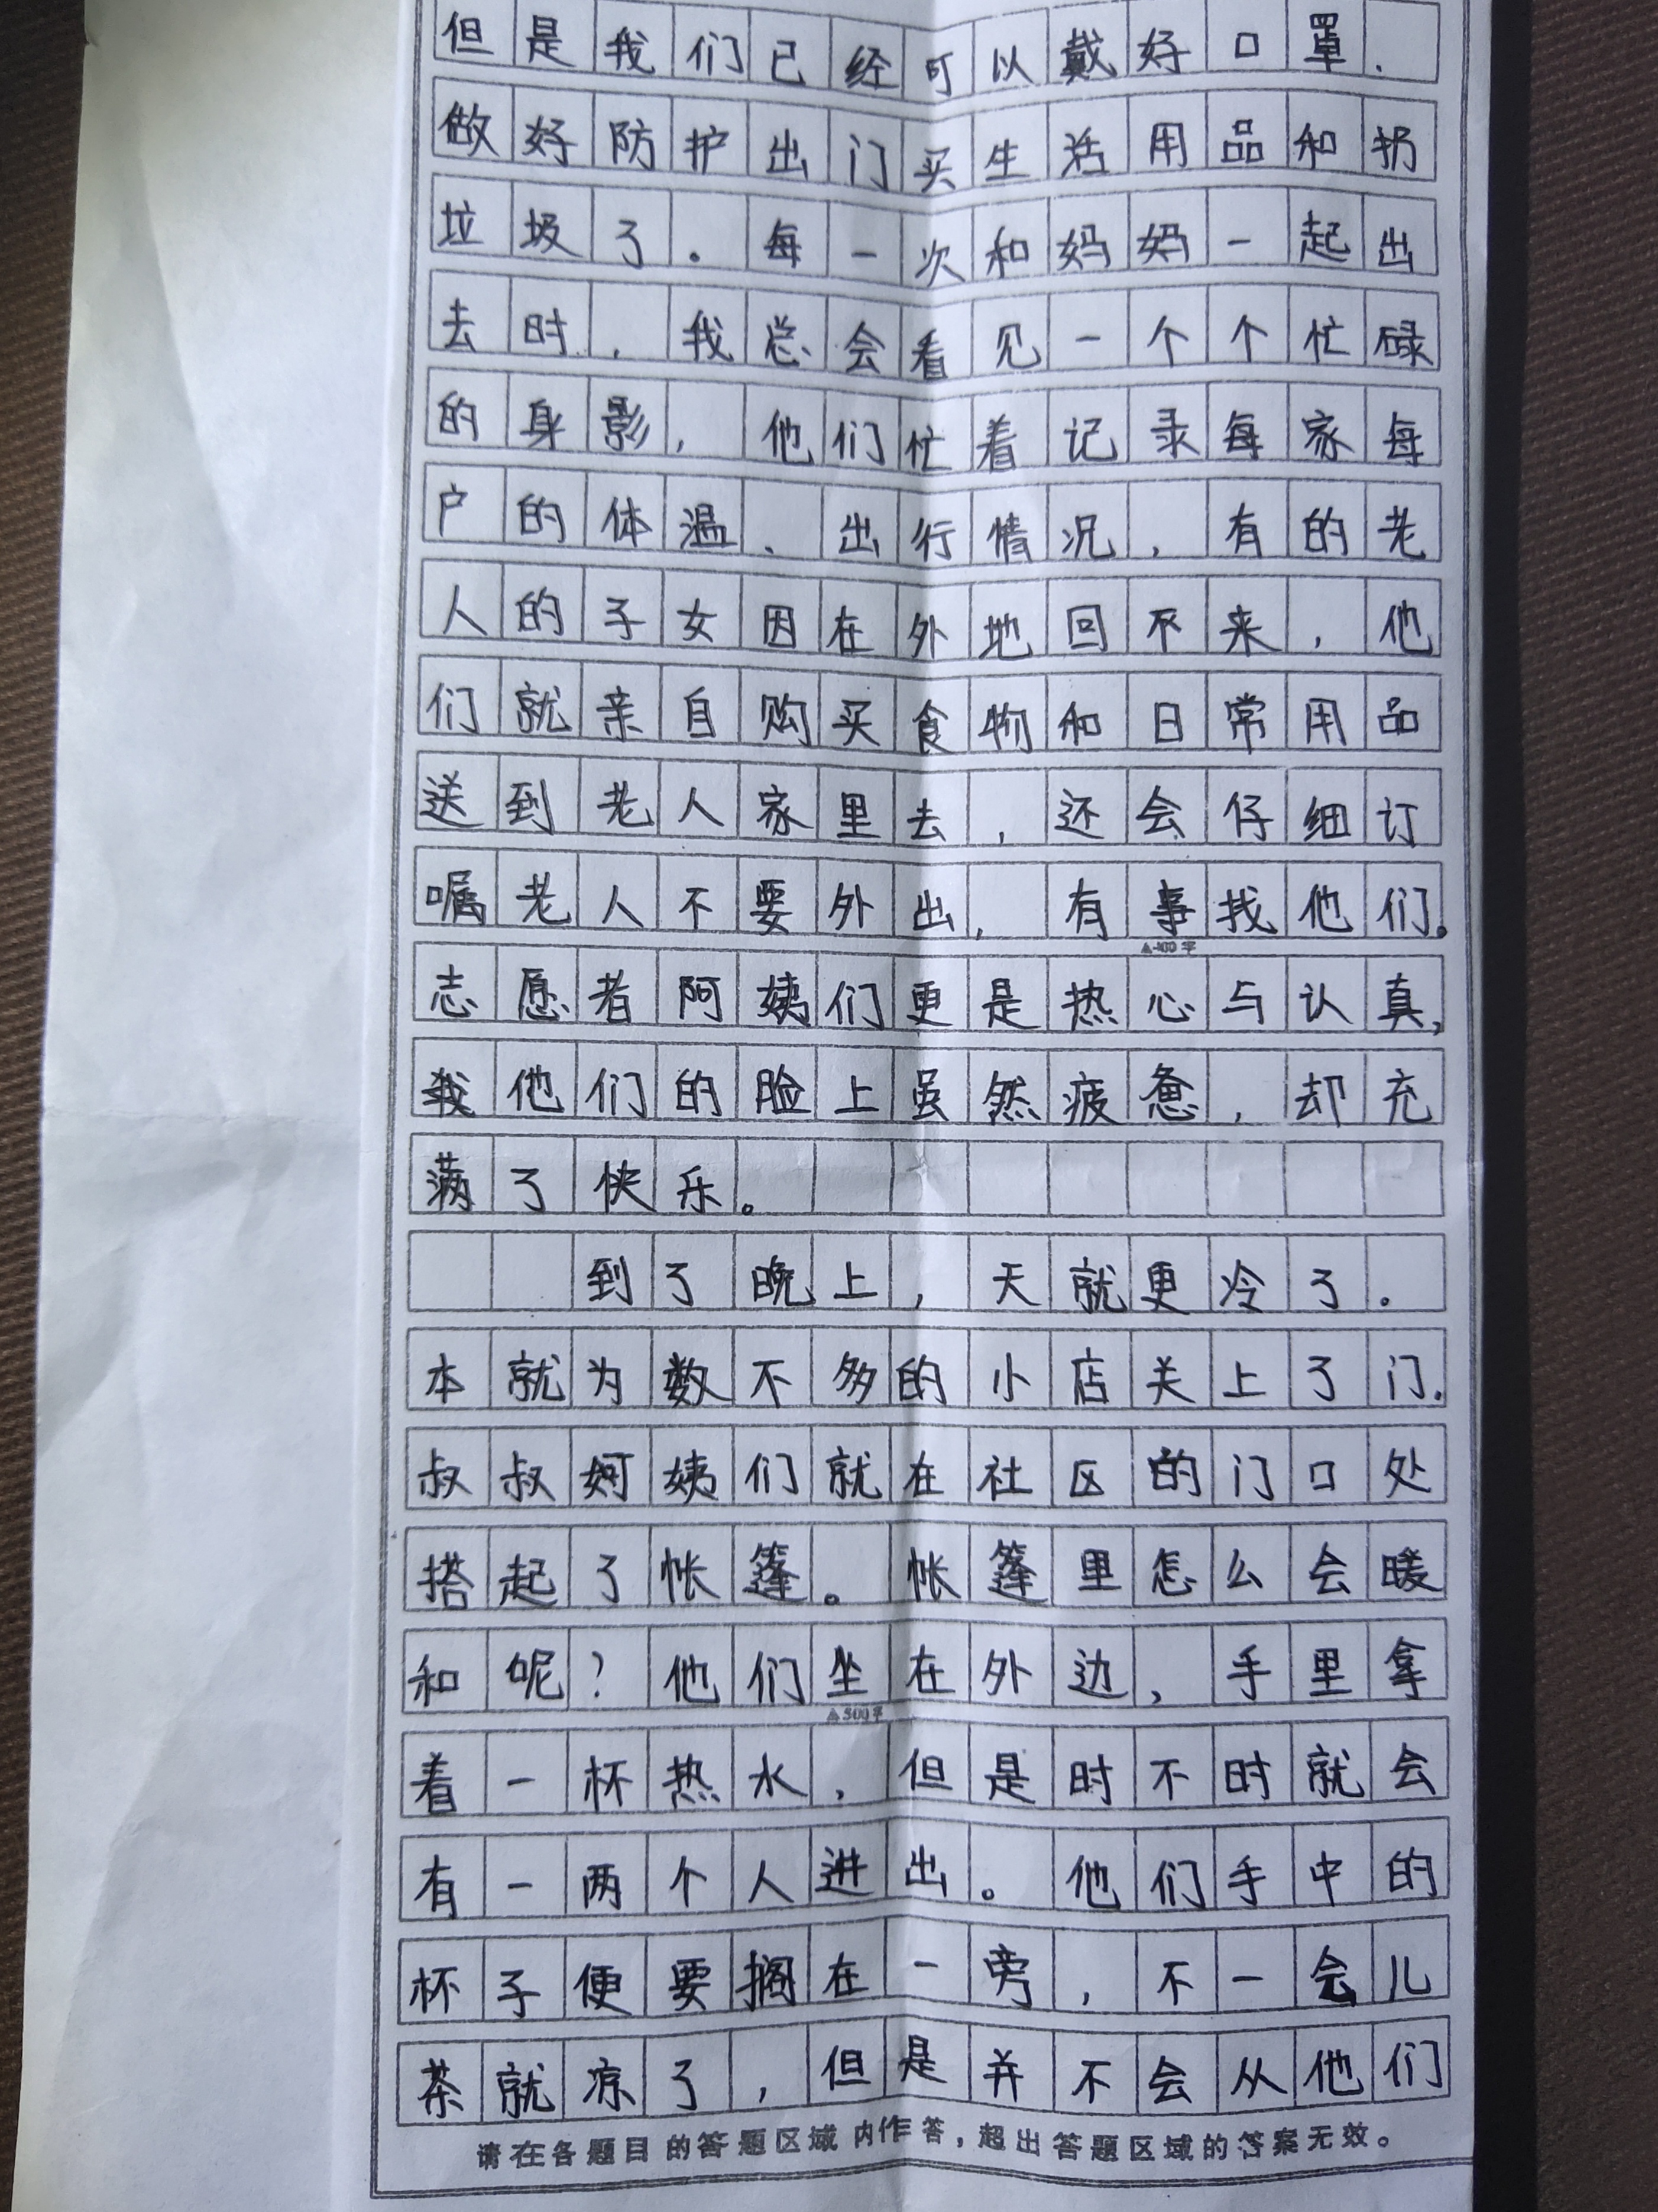 但是我们已经可以戴好口罩,
做好防护出门买生活用品和扔
垃圾了。每一次和妈妈一起出
去时,我总会看见一个个忙碌
的身影,他们忙着记录每家每
户的体温、出行情况,有的老
人的子女因在外地回不来,他
们就亲自购买食物和日常用品
送到老人家里去,还会仔细订
嘱老人不要外出,有事找他们。
▲400字
志愿者阿姨们更是热心与认真,
他们的脸上虽然疲惫,却充
满了快乐。
到了晚上,天就更冷了。
本就为数不多的小店关上了门.
叔叔婀姨们就在社区的门口处
搭起了帐篷。帐篷里怎么会暖
和呢?他们坐在外边,手里拿
▲500字
着一杯热水,但是时不时就会
有一两个人进出。他们手中的
杯子便要搁在一旁,不一会儿
茶就凉了,但是并不会从他们
请在各题目的答题区域内作答,超出答题区域的答案无效。